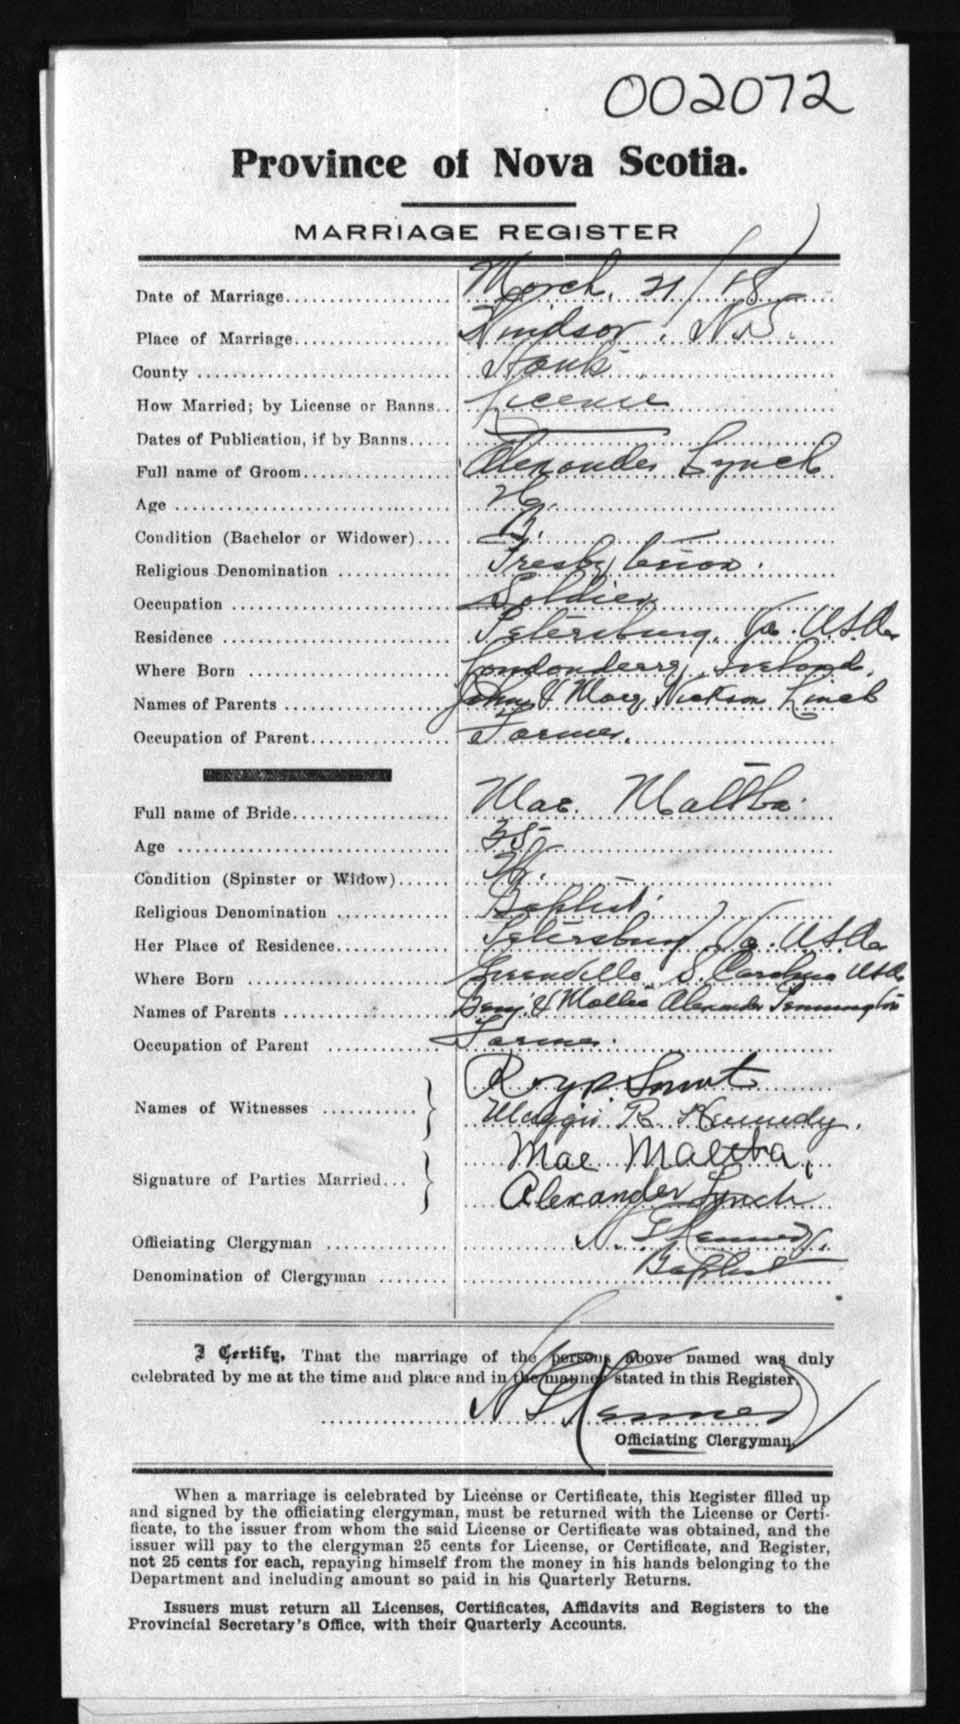 002072
Province of Nova Scotia.
MARRIAGE REGISTER
Date of Marriage March, 21/18
Place of Marriage Windsor, N.S.
County Hants
How Married; by License or Banns License
Dates of Publication, if by Banns
Full name of Groom Alexander Lynch
Age
Condition (Bachelor or Widower) B.
Religious Denomination Presbyterian.
Occupation Soldier
Residence Petersburg, Va. U.S.A.
Where Born Londonderry, Ireland.
Names of Parents John & Mary Lynch
Occupation of Parent Farmer.
Full name of Bride Mae Maltba
Age 35
Condition (Spinster or Widow) W.
Religious Denomination Baptist.
Her Place of Residence Petersburg, Va. U.S.A.
Where Born S. Carolina USA
Names of Parents Benj. & Mollie Alexander Pennington
Occupation of Parent Farmer.
Names of Witnesses Roy
Maggie B. Kennedy.
Signature of Parties Married Mae Maltba,
Alexander Lynch
Officiating Clergyman Kennedy.
Denomination of Clergyman Baptist
I Certify, That the marriage of the persons above named was duly
celebrated by me at the time and place and in the manner stated in this Register.
Kennedy
Officiating Clergyman.
When a marriage is celebrated by License or Certificate, this Register filled up
and signed by the officiating clergyman, must be returned with the License or Certi-
ficate, to the issuer from whom the said License or Certificate was obtained, and the
issuer will pay to the clergyman 25 cents for License, or Certificate, and Register,
not 25 cents for each, repaying himself from the money in his hands belonging to the
Department and including amount so paid in his Quarterly Returns.
Issuers must return all Licenses, Certificates, Affidavits and Registers to the
Provincial Secretary's Office, with their Quarterly Accounts.